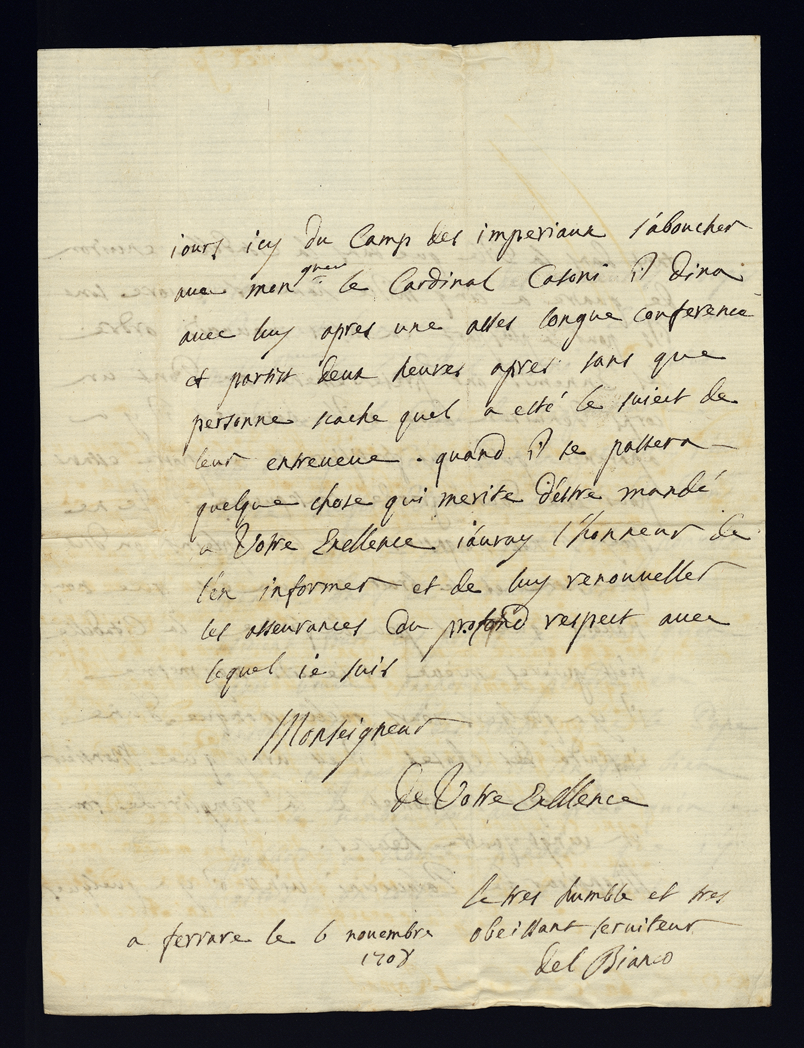 jours icy du Camp des imperiaux s'aboucher
auec mon gneur le Cardinal Casoni il dina
auec luy apres une asses longue conference
et partit deux heures apres sans que
personne scache quel a esté le suiect de
leur entreueue. quand il se passera
quelque chose qui merite d'éstre mandé
a Vostre Exellence i'auray l'honneur de
l'en informer et de luy renouueller
les asseurances du profond respect auec
lequel ie suis
Monseigneur
de Vostre Exellence
le tres humble et tres
a ferrare le 6 novembre obeissant seruiteur
1708 del Bianco